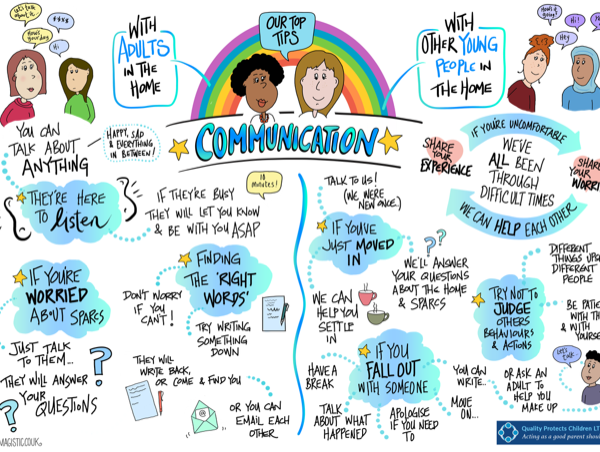 Let's talk about it.
$$$$
How's your day
Hi
WITH
ADULTS
IN THE
HOME
OUR TOP
TIPS
WITH
OTHER YOUNG
PEOPLE IN
THE HOME
How's it
going?
Hi!
Hey
COMMUNICATION
YOU CAN
TALK ABOUT
ANYTHING
HAPPY, SAD
& EVERYTHING
IN BETWEEN!
THEY'RE HERE
TO listen
IF THEY'RE BUSY
THEY WILL LET YOU KNOW
& BE WITH YOU ASAP
10
minutes!
IF YOU'RE
WORRIED
ABOUT SPARCS
JUST TALK
TO THEM...
THEY WILL ANSWER
YOUR
QUESTIONS
?
?
FINDING
THE 'RIGHT
WORDS'
DON'T WORRY
IF YOU
CAN'T!
TRY WRITING
SOMETHING
DOWN
THEY WILL
WRITE BACK,
OR COME & FIND YOU
@
OR YOU CAN
EMAIL EACH
OTHER
TALK TO US!
(WE WERE
NEW ONCE.)
IF YOU'VE
JUST MOVED
IN
??
WE'LL ANSWER
YOUR QUESTIONS
ABOUT THE HOME
& SPARCS
WE CAN
HELP YOU
SETTLE
IN
IF YOU'RE UNCOMFORTABLE
SHARE
YOUR
EXPERIENCE
WE'VE
ALL BEEN
THROUGH
DIFFICULT TIMES
SHARE
YOUR
WE CAN HELP EACH OTHER
DIFFERENT
THINGS
DIFFERENT
PEOPLE
TRY NOT TO
JUDGE
OTHERS
BEHAVIOURS
& ACTIONS
BE
WITH
& WITH
IF YOU
FALL OUT
WITH SOMEONE
HAVE A
BREAK
TALK
ABOUT WHAT
HAPPENED
APOLOGISE
IF YOU NEED
TO
YOU CAN
WRITE...
MOVE
ON...
OR ASK AN
ADULT TO
HELP YOU
MAKE UP
Let's
talk
Quality Protects Children
Acting as a good parent